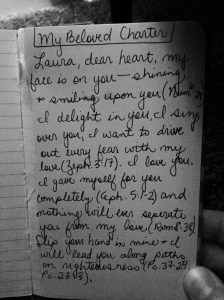 My Beloved Charter
Laura, dear heart, my
face is on you — shining
+ smiling upon you (Num 6:
I delight in you, I sing
over you, I want to drive
out every fear with my
love (Zeph. 3:17). I love you.
I gave myself for you
completely (Eph. 5:1-2) and
nothing will ever seperate
you from my love (Rom 8:38)
Slip your hand in mine + I
will lead you along paths
on righteousness (Ps. 37:24
Ps. 23:3).